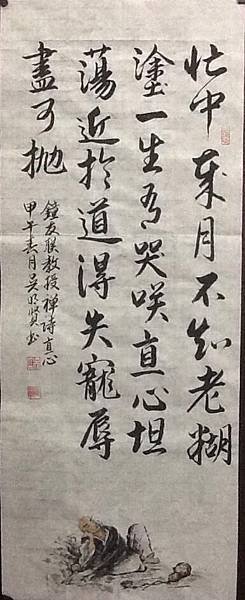 忙中歲月不知老糊
塗一生有哭咲直心坦
蕩近於道得失寵辱
盡可抛
鐘友聯教授禪詩直心
甲午春月吳明賢書